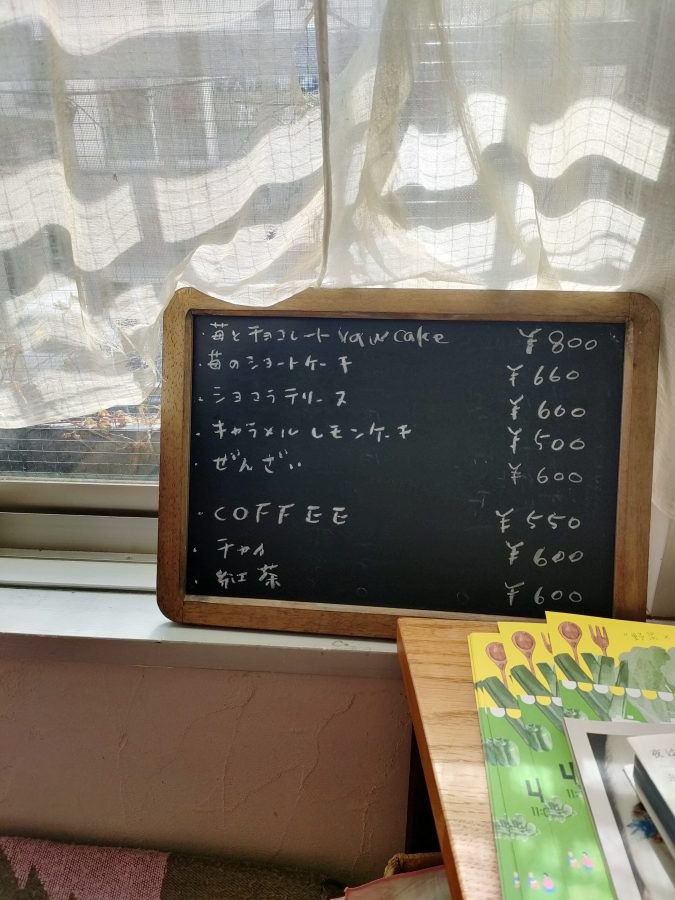 ・苺とチョコレート raw cake ¥800
・苺のショートケーキ ¥660
・ショコラテリーヌ ¥660
・キャラメルレモンケーキ ¥500
・ぜんざい ¥600
・COFFEE ¥550
・チャイ ¥600
・紅茶 ¥600
"野菜×
4
4
11: